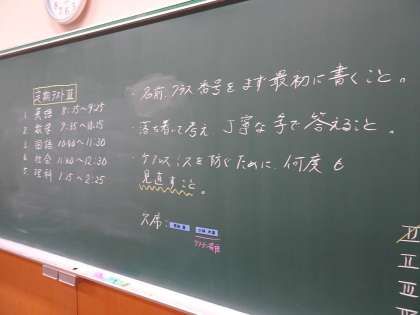 定期テストⅢ
1. 英語 8:35～9:25
2. 数学 9:35～10:25
3. 国語 10:40～11:30
4. 社会 11:40～12:30
5. 理科 1:15～2:05
・名前、クラス、番号をまず最初に書くこと。
・落ち着いて考え、丁寧な字で答えること。
・ケアレスミスを防ぐために、何度も
見直すこと。
欠席:
Ⅱ
Ⅲ